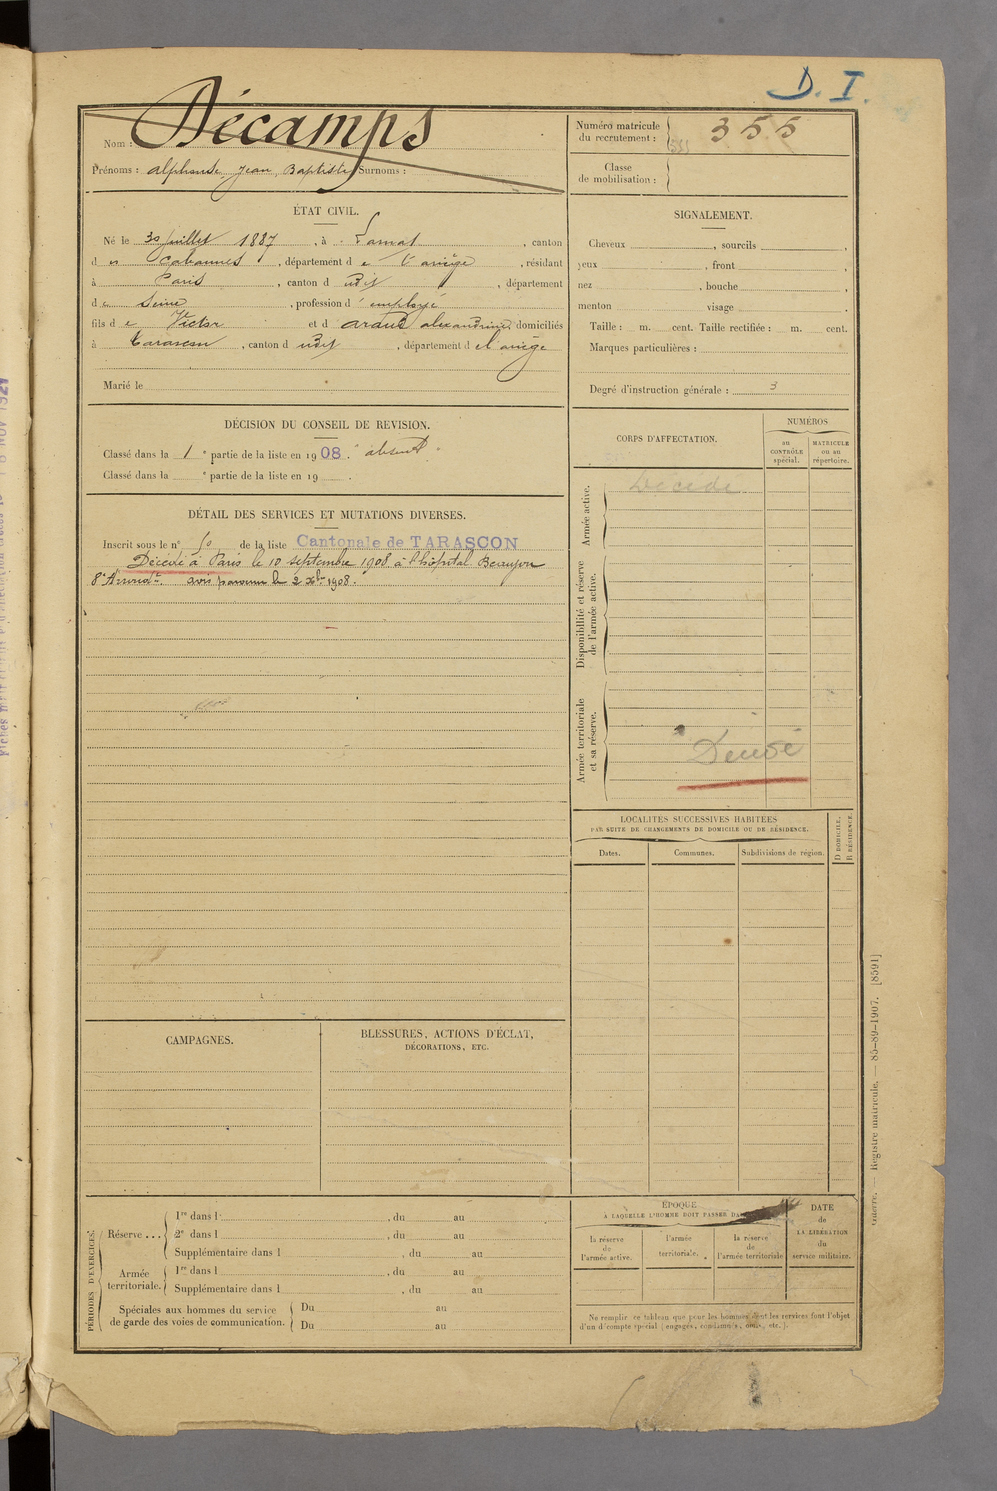 D. I.
Nom : Décamps
Prénoms : Alphonse, Jean, Baptiste Surnoms :
Numéro matricule du recrutement : 355
Classe de mobilisation :
ÉTAT CIVIL.
Né le 30 Juillet 1887, à Larnat, canton
d es Cabannes, département d e l'ariège, résidant
à Paris, canton d udit, département
d e Seine, profession d' employé
fils d e Victor et d araud alexandrine, domiciliés
à Tarascon, canton d udit, département d e l'ariège
Marié le
SIGNALEMENT.
Cheveux , sourcils ,
yeux , front ,
nez , bouche ,
menton visage .
Taille : m. cent. Taille rectifiée : m. cent.
Marques particulières :
Degré d'instruction générale : 3
DÉCISION DU CONSEIL DE REVISION.
Classé dans la 1 e partie de la liste en 1908. "absent".
Classé dans la e partie de la liste en 19 .
DÉTAIL DES SERVICES ET MUTATIONS DIVERSES.
Inscrit sous le n° 50 de la liste Cantonale de TARASCON
Décédé à Paris le 10 septembre 1908 à l'hôpital Beaujon
8e Arrondt. avis parvenu le 2 Xbre 1908.
CORPS D'AFFECTATION.
NUMÉROS
au CONTRÔLE spécial.
MATRICULE ou au répertoire.
Armée active.
Décédé
Disponibilité et réserve de l'armée active.
Armée territoriale et sa réserve.
Décédé
LOCALITÉS SUCCESSIVES HABITÉES
PAR SUITE DE CHANGEMENTS DE DOMICILE OU DE RÉSIDENCE.
Dates.
Communes.
Subdivisions de région.
D DOMICILE.
R RÉSIDENCE.
CAMPAGNES.
BLESSURES, ACTIONS D'ÉCLAT,
DÉCORATIONS, ETC.
PÉRIODES D'EXERCICES.
Réserve ...
1re dans l , du au
2e dans l , du au
Supplémentaire dans l , du au
Armée territoriale.
1re dans l , du au
Supplémentaire dans l , du au
Spéciales aux hommes du service
de garde des voies de communication.
Du au
Du au
ÉPOQUE
À LAQUELLE L'HOMME DOIT PASSER DA
la réserve de l'armée active.
l'armée territoriale.
la réserve de l'armée territoriale
DATE de LA LIBÉRATION du service militaire.
Ne remplir ce tableau que pour les hommes dont les services font l'objet
d'un décompte spécial (engagés, condamnés, omis, etc.).
Registre matricule. — 85-89-1907. [8591]